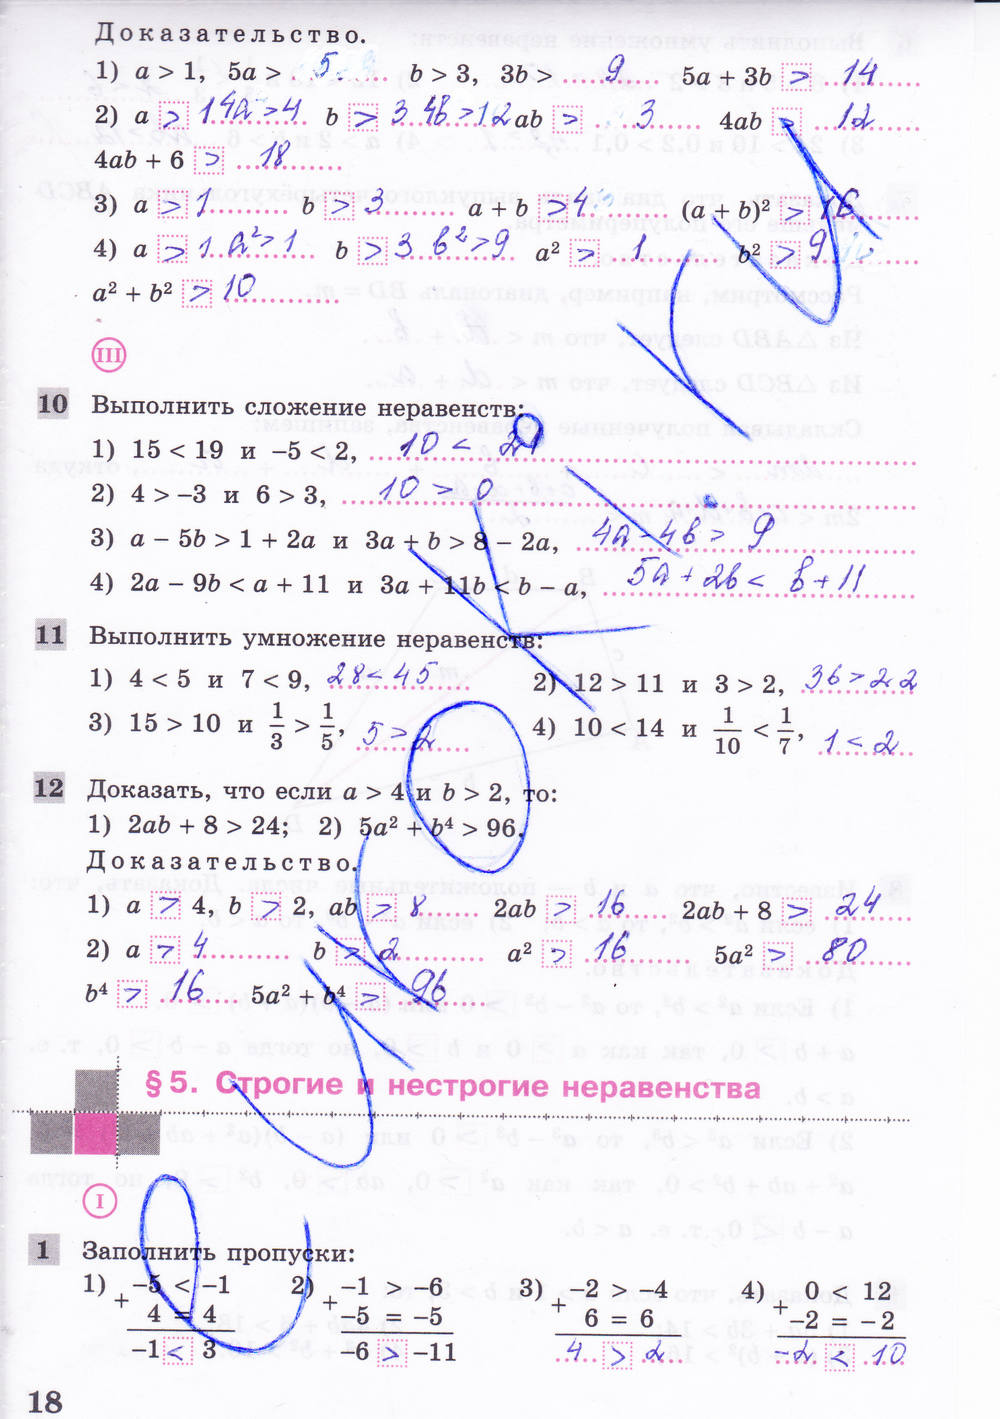 Доказательство.
1) a > 1, 5a > 5 b > 3, 3b > 9 5a + 3b > 14
2) a > 1. 4a > 4 b > 3. 4b > 12 ab > 3 4ab > 12
4ab + 6 > 18
3) a > 1 b > 3 a + b > 4. (a + b)² > 16
4) a > 1. a² > 1 b > 3. b² > 9 a² > 1 b² > 9
a² + b² > 10
III
10 Выполнить сложение неравенств:
1) 15 < 19 и –5 < 2, 10 < 21
2) 4 > –3 и 6 > 3, 10 > 0
3) a – 5b > 1 + 2a и 3a + b > 8 – 2a, 4a – 4b > 9
4) 2a – 9b < a + 11 и 3a + 11b < b – a, 5a + 2b < b + 11
11 Выполнить умножение неравенств:
1) 4 < 5 и 7 < 9, 28 < 45 2) 12 > 11 и 3 > 2, 36 > 22
3) 15 > 10 и 1/3 > 1/5, 5 > 2 4) 10 < 14 и 1/10 < 1/7, 1 < 2
12 Доказать, что если a > 4 и b > 2, то:
1) 2ab + 8 > 24; 2) 5a² + b⁴ > 96.
Доказательство.
1) a > 4, b > 2, ab > 8 2ab > 16 2ab + 8 > 24
2) a > 4 b > 2 a² > 16 5a² > 80
b⁴ > 16 5a² + b⁴ > 96
§ 5. Строгие и нестрогие неравенства
I
1 Заполнить пропуски:
1) –5 < –1 2) –1 > –6 3) –2 > –4 4) 0 < 12
+ 4 = 4 + –5 = –5 + 6 = 6 + –2 = –2
–1 < 3 –6 > –11 4 > 2 –2 < 10
18